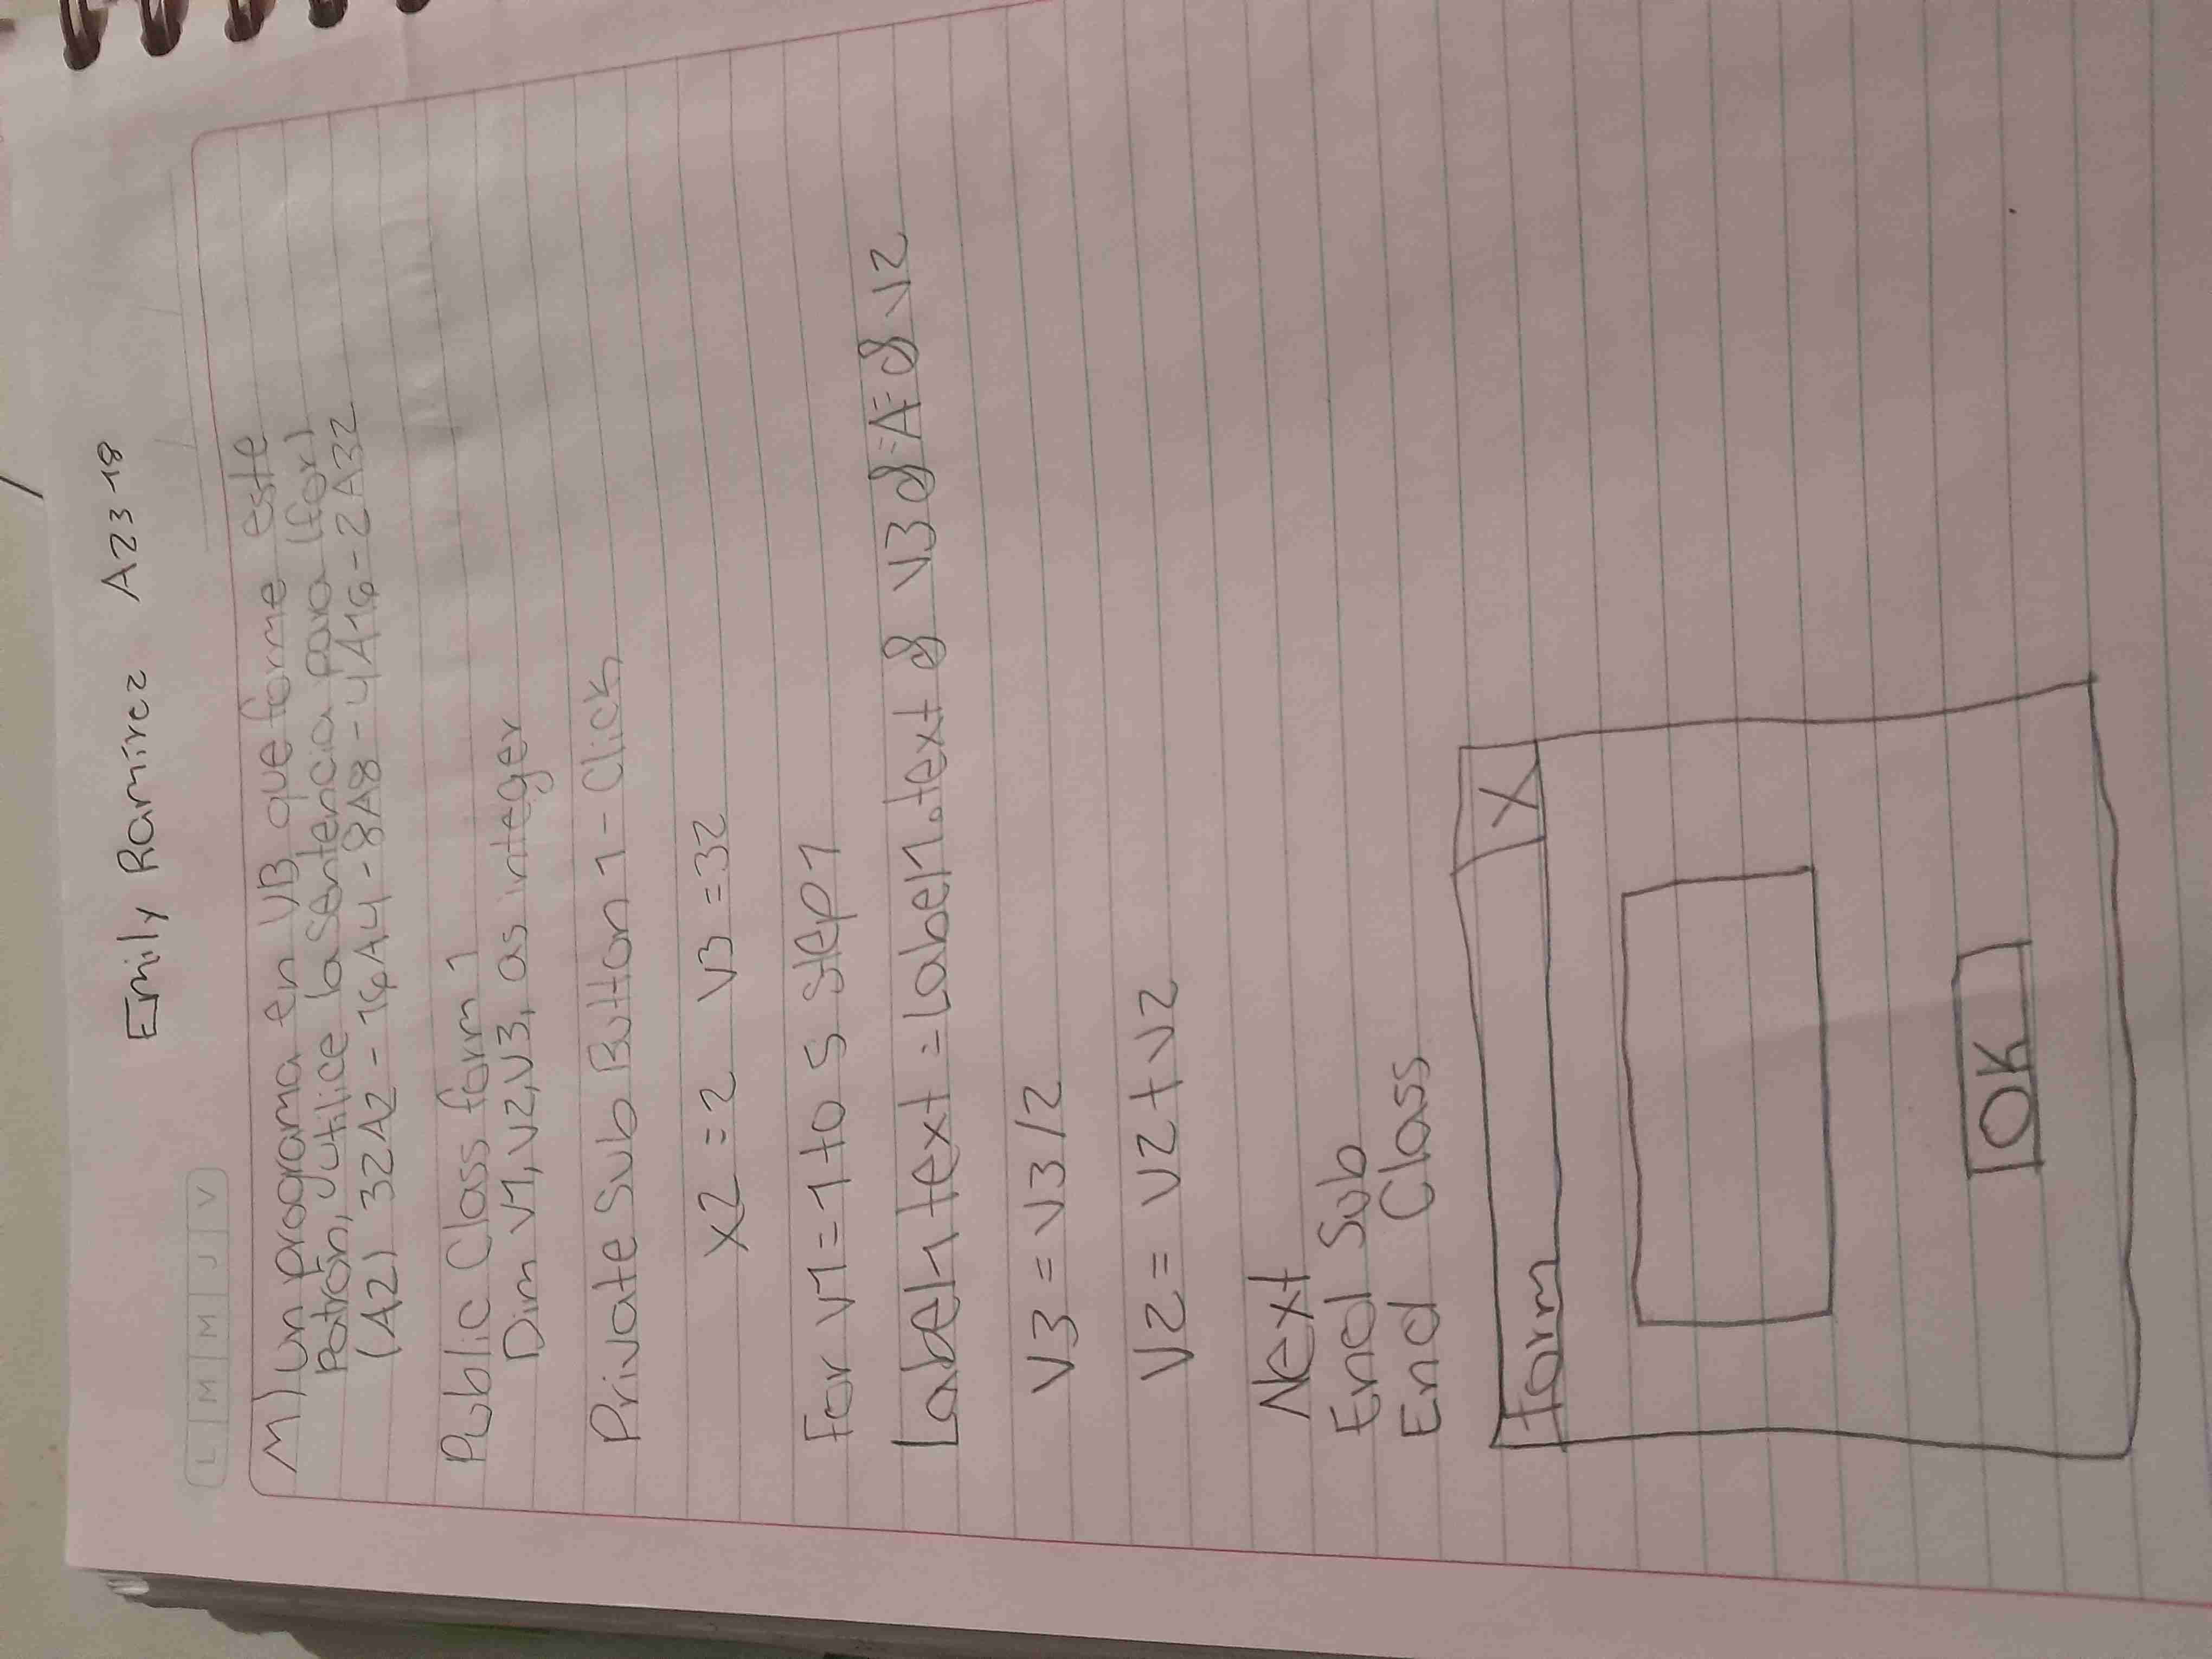 Emily Ramirez A23-18
L M M J V
M) Un programa en VB que forme este
Patrón, utilice la sentencia Para (for)
(A2) 32A2 - 16A4 - 8A8 - 4A16 - 2A32
Public Class form 1
Dim V1, V2, V3, as integer
Private Sub Button 1 - Click
X2 = 2 V3 = 32
For V1 = 1 to 5 step 1
Label1 text = Label1.text & V3 &=A=& V2
V3 = V3/2
V2 = V2 + V2
Next
End Sub
End Class
form X
OK